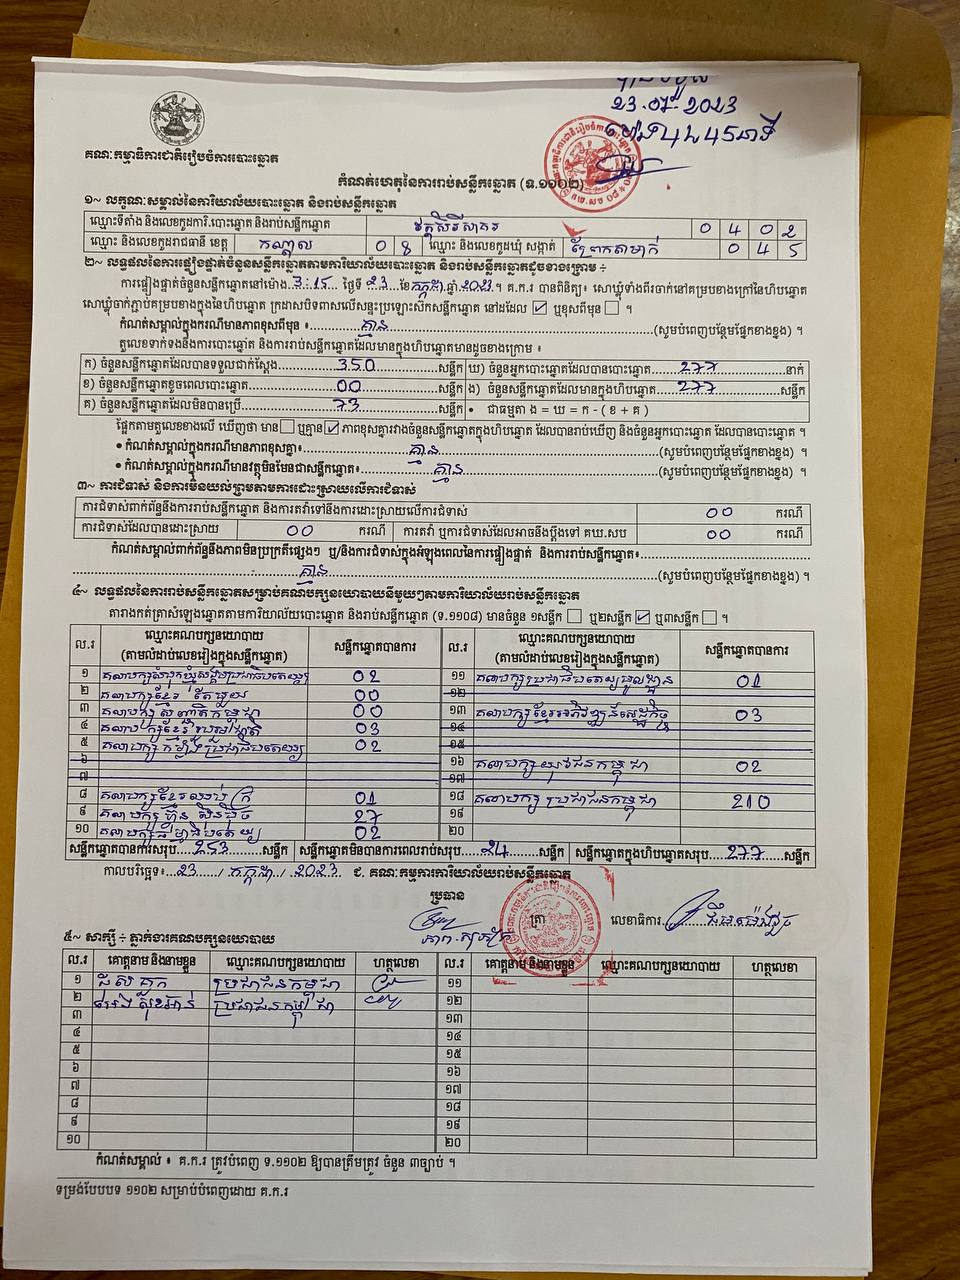 23.07.2023
គណៈកម្មាធិការជាតិរៀបចំការបោះឆ្នោត
កំណត់ហេតុនៃការរាប់សន្លឹកឆ្នោត (ទ.១១០២)
១~ លក្ខណៈសម្គាល់នៃការិយាល័យបោះឆ្នោត និងរាប់សន្លឹកឆ្នោត
ឈ្មោះទីតាំង និងលេខកូដការិ.បោះឆ្នោត និងរាប់សន្លឹកឆ្នោត វត្តសិរីសាគរ 0 4 0 2
ឈ្មោះ និងលេខកូដរាជធានី ខេត្ត កណ្តាល 0 8 ឈ្មោះ និងលេខកូដឃុំ សង្កាត់ ព្រែកតាមាក់ 0 4 5
២~ លទ្ធផលនៃការផ្ទៀងផ្ទាត់ចំនួនសន្លឹកឆ្នោតតាមការិយាល័យបោះឆ្នោត និងរាប់សន្លឹកឆ្នោតដូចខាងក្រោម ÷
ការផ្ទៀងផ្ទាត់ចំនួនសន្លឹកឆ្នោតនៅម៉ោង 3:15 ថ្ងៃទី 23 ខែ កក្កដា ឆ្នាំ 2023 ។ គ.ក.រ បានពិនិត្យ៖ សោឃ្លុំទាំងពីរចាក់នៅគម្របខាងក្រៅនៃហិបឆ្នោត
សោឃ្លុំចាក់ភ្ជាប់គម្របខាងក្នុងនៃហិបឆ្នោត ក្រដាសបិទពាសលើសន្ទះប្រឡោះស៊កសន្លឹកឆ្នោត នៅដដែល ☑ ឬខុសពីមុន ☐ ។
កំណត់សម្គាល់ក្នុងករណីមានភាពខុសពីមុន ៖ គ្មាន (សូមបំពេញបន្ថែមផ្នែកខាងខ្នង) ។
តួលេខទាក់ទងនឹងការបោះឆ្នោត និងការរាប់សន្លឹកឆ្នោតដែលមានក្នុងហិបឆ្នោតមានដូចខាងក្រោម ៖
ក) ចំនួនសន្លឹកឆ្នោតដែលបានទទួលជាក់ស្តែង 350 សន្លឹក ឃ) ចំនួនអ្នកបោះឆ្នោតដែលបានបោះឆ្នោត 277 នាក់
ខ) ចំនួនសន្លឹកឆ្នោតខូចពេលបោះឆ្នោត 00 សន្លឹក ង) ចំនួនសន្លឹកឆ្នោតដែលមានក្នុងហិបឆ្នោត 277 សន្លឹក
គ) ចំនួនសន្លឹកឆ្នោតដែលមិនបានប្រើ 73 សន្លឹក • ជាធម្មតា ង = ឃ = ក - ( ខ + គ )
ផ្អែកតាមតួលេខខាងលើ ឃើញថា មាន ☐ ឬគ្មាន ☑ ភាពខុសគ្នារវាងចំនួនសន្លឹកឆ្នោតក្នុងហិបឆ្នោត ដែលបានរាប់ឃើញ និងចំនួនអ្នកបោះឆ្នោត ដែលបានបោះឆ្នោត ។
• កំណត់សម្គាល់ក្នុងករណីមានភាពខុសគ្នា៖ គ្មាន (សូមបំពេញបន្ថែមផ្នែកខាងខ្នង) ។
• កំណត់សម្គាល់ក្នុងករណីមានវត្ថុមិនមែនជាសន្លឹកឆ្នោត៖ គ្មាន (សូមបំពេញបន្ថែមផ្នែកខាងខ្នង) ។
៣~ ការជំទាស់ និងការមិនយល់ព្រមតាមការដោះស្រាយលើការជំទាស់
ការជំទាស់ពាក់ព័ន្ធនឹងការរាប់សន្លឹកឆ្នោត និងការតវ៉ាទៅនឹងការដោះស្រាយលើការជំទាស់ 00 ករណី
ការជំទាស់ដែលបានដោះស្រាយ 00 ករណី ការតវ៉ា ឬការជំទាស់ដែលអាចនឹងប្តឹងទៅ គឃ.សប 00 ករណី
កំណត់សម្គាល់ពាក់ព័ន្ធនឹងភាពមិនប្រក្រតីផ្សេងៗ ឬ/និងការជំទាស់ក្នុងអំឡុងពេលនៃការផ្ទៀងផ្ទាត់ និងការរាប់សន្លឹកឆ្នោត៖
គ្មាន (សូមបំពេញបន្ថែមផ្នែកខាងខ្នង) ។
៤~ លទ្ធផលនៃការរាប់សន្លឹកឆ្នោតសម្រាប់គណបក្សនយោបាយនីមួយៗតាមការិយាល័យរាប់សន្លឹកឆ្នោត
តារាងកត់ត្រាសំឡេងឆ្នោតតាមការិយាល័យបោះឆ្នោត និងរាប់សន្លឹកឆ្នោត (ទ.១១០៨) មានចំនួន ១សន្លឹក ☐ ឬ២សន្លឹក ☑ ឬ៣សន្លឹក ☐ ។
ល.រ ឈ្មោះគណបក្សនយោបាយ (តាមលំដាប់លេខរៀងក្នុងសន្លឹកឆ្នោត) សន្លឹកឆ្នោតបានការ ឈ្មោះគណបក្សនយោបាយ (តាមលំដាប់លេខរៀងក្នុងសន្លឹកឆ្នោត) សន្លឹកឆ្នោតបានការ
១ គណបក្សសំបុកឃ្មុំសង្គមប្រជាធិបតេយ្យ 02 ១១ គណបក្សប្រជាធិបតេយ្យមូលដ្ឋាន 01
២ គណបក្សខ្មែរតែមួយ 00 ១២
៣ គណបក្សសញ្ជាតិកម្ពុជា 00 ១៣ គណបក្សខ្មែរអភិវឌ្ឍន៍សេដ្ឋកិច្ច 03
៤ គណបក្សខ្មែររួបរួមជាតិ 03 ១៤
៥ គណបក្សកម្លាំងប្រជាធិបតេយ្យ 02 ១៥
៦ ១៦ គណបក្សយុវជនកម្ពុជា 02
៧ ១៧
៨ គណបក្សខ្មែរឈប់ក្រ 01 ១៨ គណបក្សប្រជាជនកម្ពុជា 210
៩ គណបក្សហ៊្វុនស៊ិនប៉ិច 27 ១៩
១០ គណបក្សធម្មាធិបតេយ្យ 02 ២០
សន្លឹកឆ្នោតបានការសរុប 253 សន្លឹក សន្លឹកឆ្នោតមិនបានការពេលរាប់សរុប 24 សន្លឹក សន្លឹកឆ្នោតក្នុងហិបឆ្នោតសរុប 277 សន្លឹក
កាលបរិច្ឆេទ៖ 23 / កក្កដា / 2023 ជ. គណៈកម្មការការិយាល័យរាប់សន្លឹកឆ្នោត
ប្រធាន
ត្រា លេខាធិការ
៥~ សាក្សី ÷ ភ្នាក់ងារគណបក្សនយោបាយ
ល.រ គោត្តនាម និងនាមខ្លួន ឈ្មោះគណបក្សនយោបាយ ហត្ថលេខា ល.រ គោត្តនាម និងនាមខ្លួន ឈ្មោះគណបក្សនយោបាយ ហត្ថលេខា
១ ប្រជាជនកម្ពុជា ១១
២ ប្រជាជនកម្ពុជា ១២
៣ ១៣
៤ ១៤
៥ ១៥
៦ ១៦
៧ ១៧
៨ ១៨
៩ ១៩
១០ ២០
កំណត់សម្គាល់ ៖ គ.ក.រ ត្រូវបំពេញ ទ.១១០២ ឱ្យបានត្រឹមត្រូវ ចំនួន ៣ច្បាប់ ។
ទម្រង់បែបបទ ១១០២ សម្រាប់បំពេញដោយ គ.ក.រ